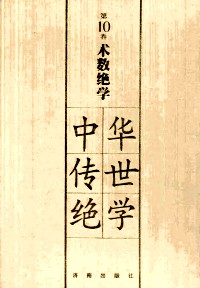 第
10
卷
术数绝学
中华
传世
绝学
济南出版社